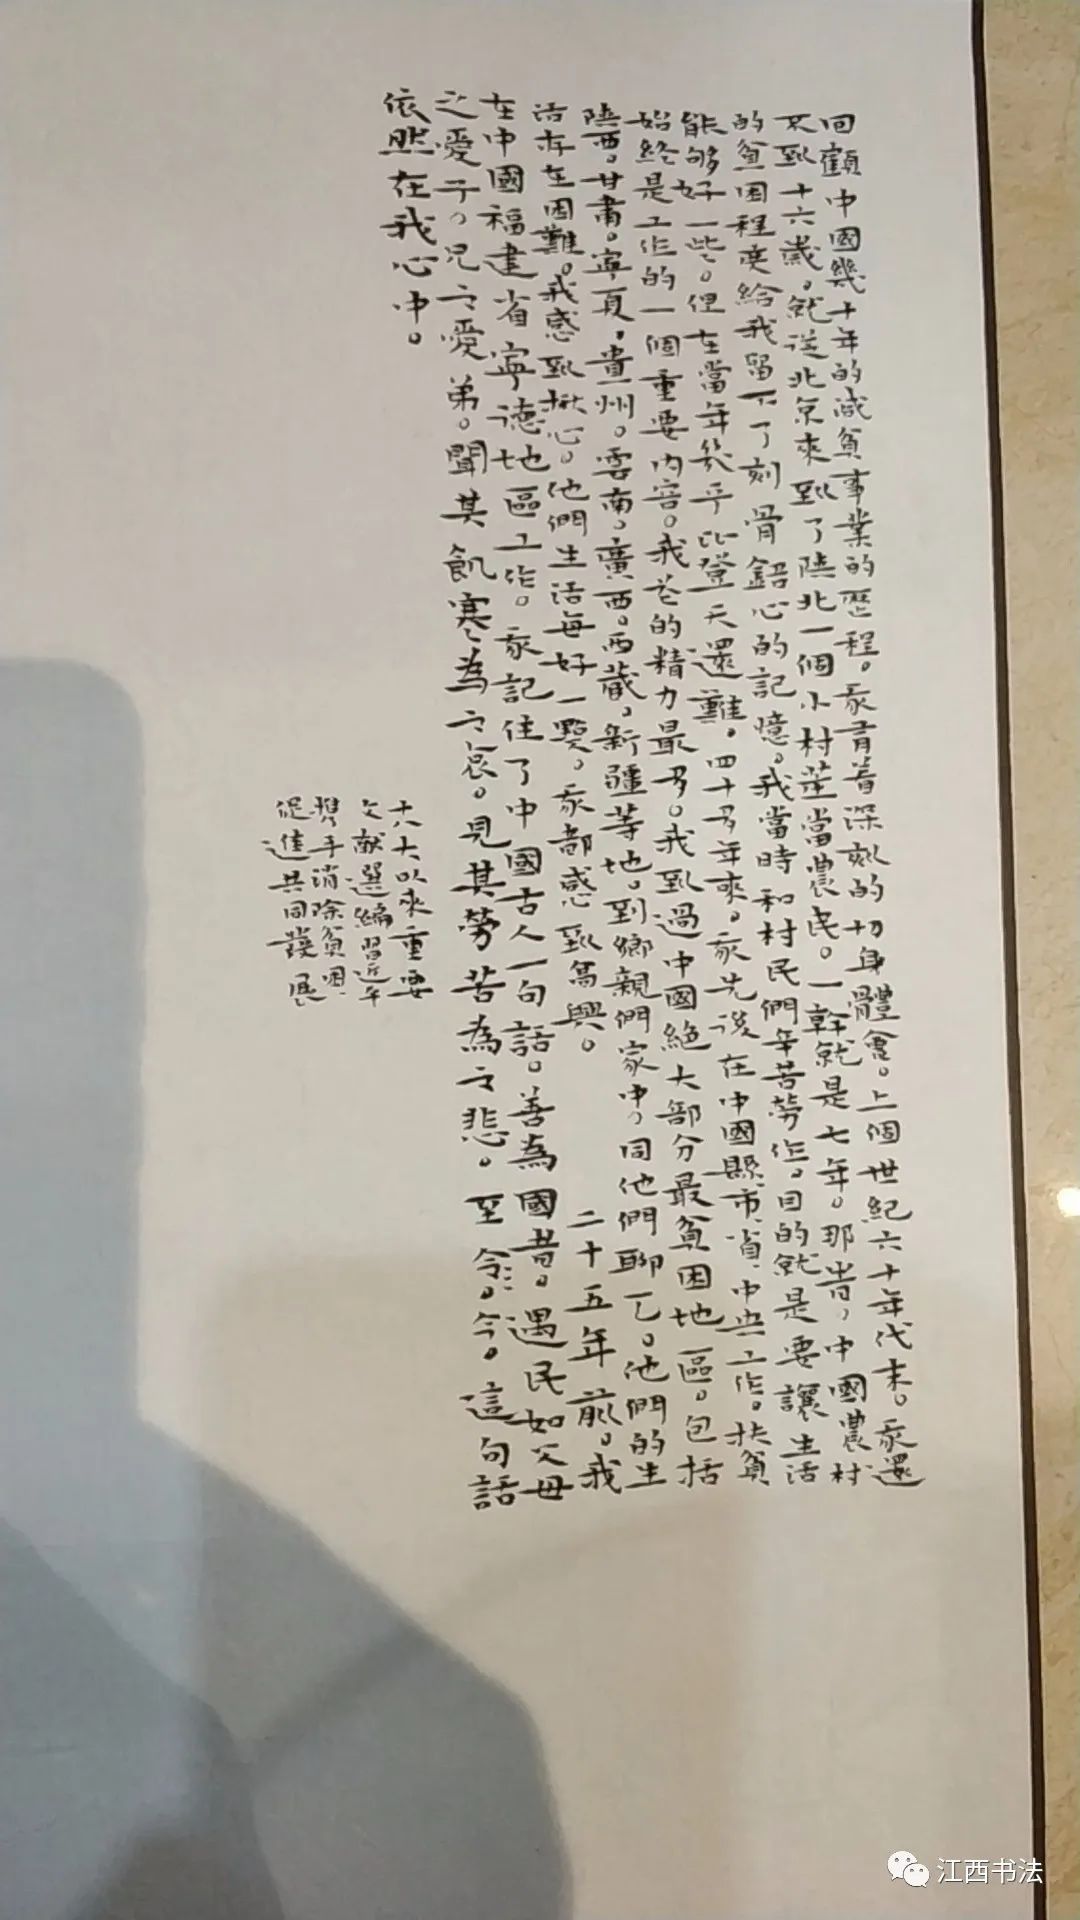 回顧中國幾十年的減貧事業的歷程。我有着深刻的切身體會。上個世紀六十年代末。我還
不到十六歲。就從北京來到了陝北一個小村莊當農民。一幹就是七年。那時，中國農村
的貧困程度給我留下了刻骨銘心的記憶。我當時和村民們辛苦勞作。目的就是要讓生活
能够好一些。但在當年幾乎比登天還難。四十多年來。我先後在中國縣、市、省、中央工作。扶貧
始終是工作的一個重要内容。我花的精力最多。我到過中國絕大部分最貧困地區。包括
陝西。甘肅。寧夏。貴州。雲南。廣西。西藏。新疆等地。到鄉親們家中，同他們聊了。他們的生
活存在困難。我感到揪心。他們生活每好一點。我都感到高興。二十五年前。我
在中國福建省寧德地區工作。我記住了中國古人一句話。善為國者。遇民如父母
之愛子。兄之愛弟。聞其飢寒為之哀。見其勞苦為之悲。至令。今。這句話
依然在我心中。
十八大以來重要
文献選編習近平
携手消除貧困、
促進共同發展
江西书法